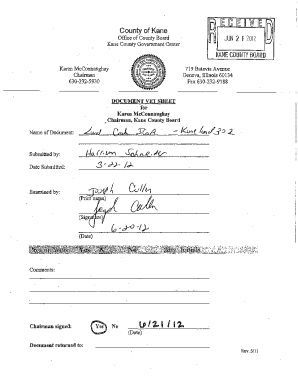 County of Kane
Office of County Board
Kane County Government Center
RECEIVED
JUN 2 2012
KANE COUNTY BOARD
Karen McConnaughay
Chairman
630-232-5930
719 Batavia Avenue
Geneva, Illinois 60134
Fax 630-232-9188
DOCUMENT VET SHEET
for
Karen McConnaughay
Chairman, Kane County Board
Name of Document:
Submitted by: Harrison
Date Submitted: 3-22-12
Examined by: Joseph Cullen
(Print name)
Joseph Cullen
(Signature)
6-20-12
(Date)
Comments:
Chairman signed: Yes No 6/21/12
(Date)
Document returned to:
Rev. 5/11